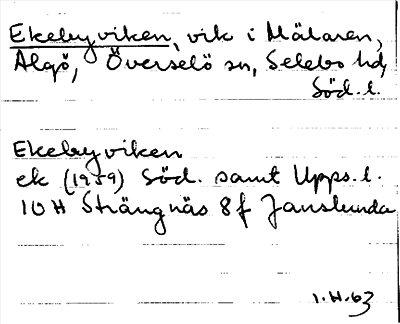 Ekebyviken, vik i Mälaren,
Algö, Överselö sn, Selebo hd,
Söd. l.
Ekebyviken
ek (1959) Söd. samt Upps. l.
10H Strängnäs 8f Janslunda
1.H.63